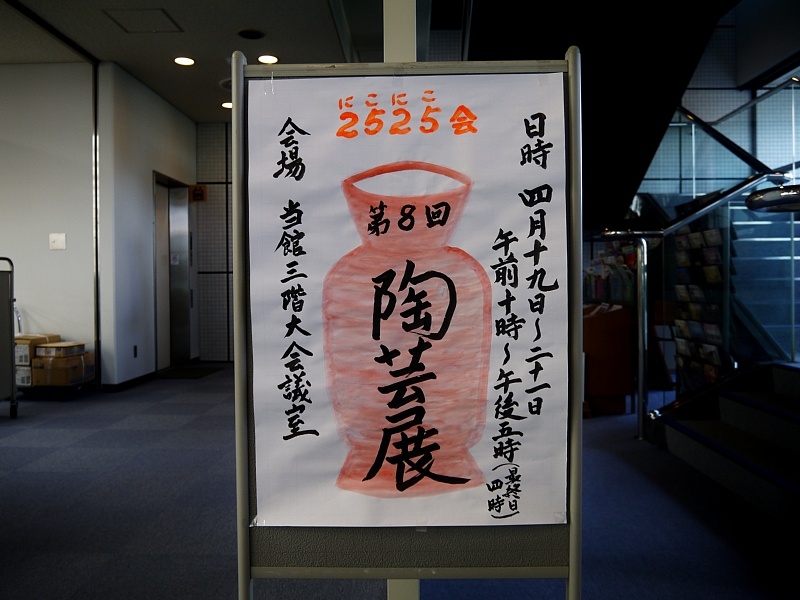 にこにこ
2525会
第8回
陶芸展
日時 四月十九日〜二十一日
午前十時〜午後五時(最終日四時)
会場 当館三階大会議室